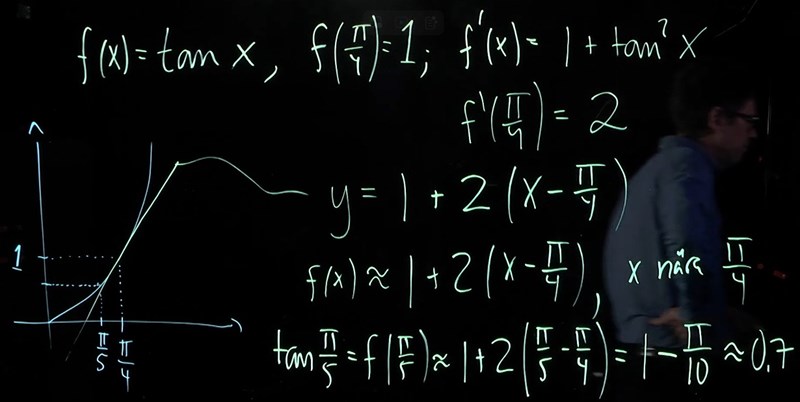 f(x) = tan x, f(π/4) = 1; f'(x) = 1 + tan² x
f'(π/4) = 2
y = 1 + 2(x - π/4)
f(x) ≈ 1 + 2(x - π/4), x nära π/4
tan π/5 = f(π/5) ≈ 1 + 2(π/5 - π/4) = 1 - π/10 ≈ 0,7
1
π/5 π/4